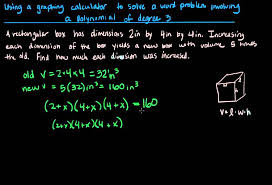 Using a graphing calculator to solve a word problem involving
a Polynomial of degree 3
A rectangular box has dimensions 2in by 4in by 4in. Increasing
each dimension of the box yields a new box with volume 5 times
the old. Find how much each dimension was increased.
old V = 2·4·4 = 32in³
new V = 5(32)in³ = 160in³
(2+x)(4+x)(4+x) = 160
(2+x)(4+x)(4+x)
V = l·w·h